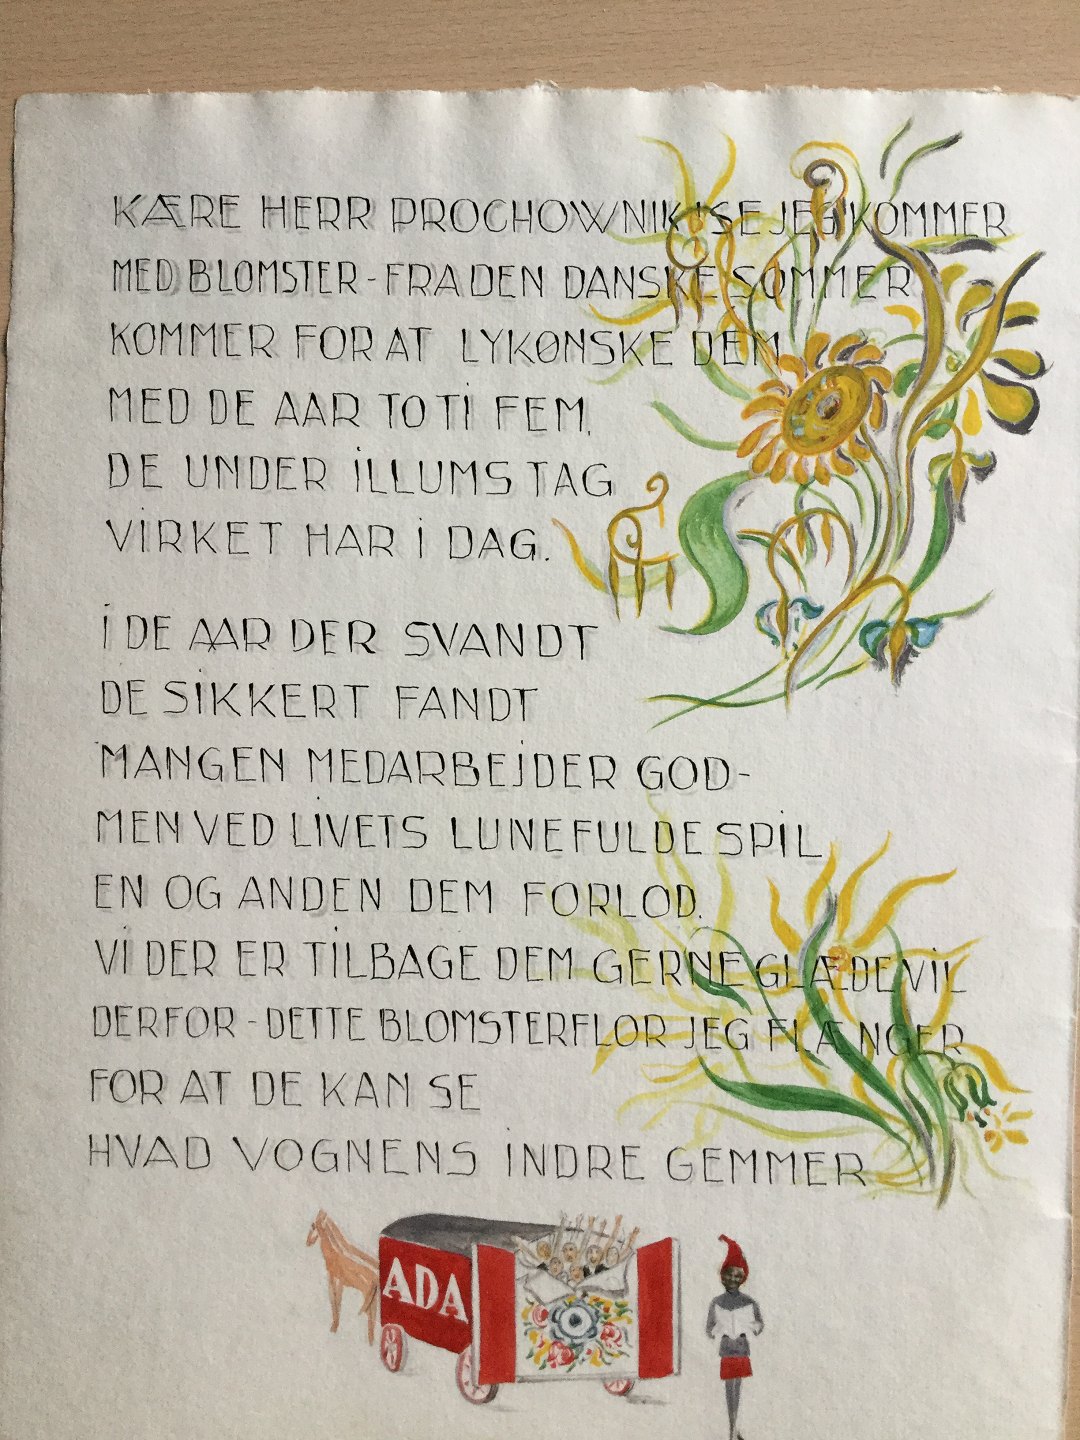 KÆRE HERR PROCHOWNIK! SE JEG KOMMER
MED BLOMSTER - FRA DEN DANSKE SOMMER
KOMMER FOR AT LYKØNSKE DEM
MED DE AAR TO TI FEM.
DE UNDER ILLUMS TAG
VIRKET HAR I DAG.
I DE AAR DER SVANDT
DE SIKKERT FANDT
MANGEN MEDARBEJDER GOD-
MEN VED LIVETS LUNEFULDE SPIL
EN OG ANDEN DEM FORLOD.
VI DER ER TILBAGE DEM GERNE GLÆDE VIL
DERFOR - DETTE BLOMSTERFLOR JEG FLÆNGER
FOR AT DE KAN SE
HVAD VOGNENS INDRE GEMMER
ADA